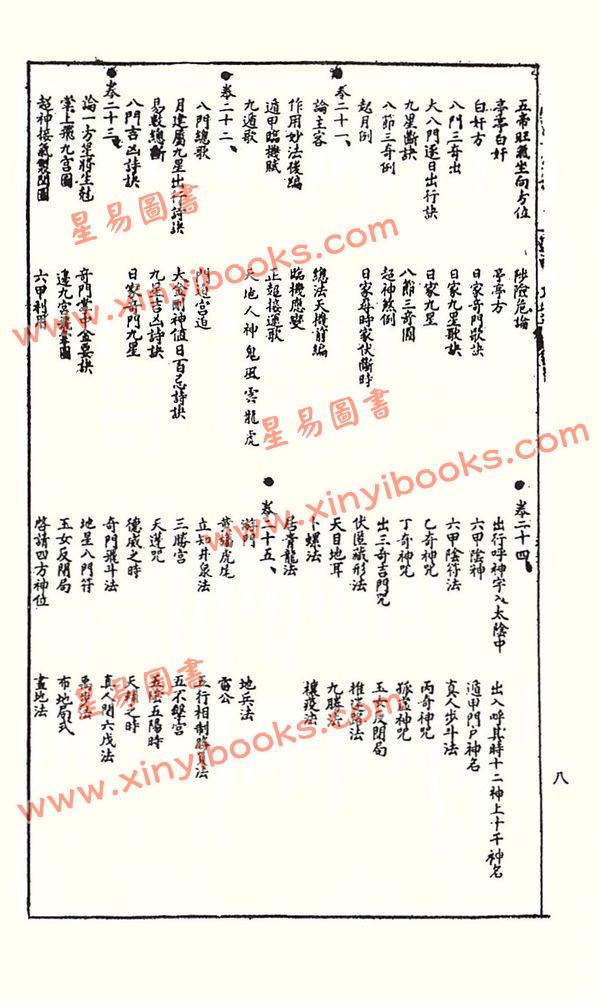 五帝旺氣坐向方位
亭亭白奸
白奸方
八門三奇出
大八門逐日出行訣
九星斷訣
八節三奇例
起月例
論主客
卷二十一、
作用妙法後編
遁甲臨機賦
九遁歌
卷二十二、
八門總歌
月建屬九星出行詩訣
易數總斷
八門吉凶詩訣
卷二十三、
論一方星將生尅
掌上飛九宮圖
超神接氣製閏圖
陟險危論
亭亭方
日家奇門歌訣
日家九星歌訣
日家九星
八節三奇圖
超神煞例
日家每時家伏斷時
總法天機首編
臨機應變
正超接遁歌
天地人神鬼風雲龍虎
門迫宮迫
大金剛神值日百忌詩訣
九星吉凶詩訣
日家奇門九星
奇門掌中金要訣
六甲利用
卷二十四、
出行呼神字入太陰中
六甲陰神
六甲陰符法
乙奇神咒
丁奇神咒
出三奇吉門咒
伏匿藏形法
天目地耳
卜螺法
居青龍法
卷二十五、
游門
立知井泉法
三勝宮
天蓬咒
德威之時
奇門飛斗法
地星八門符
玉女反閉局
啓請四方神位
出入呼其時十二神上十干神名
遁甲門戶神名
真人步斗法
丙奇神咒
孤虛神咒
玉女反閉局
推迷路法
九勝法
禳疫法
地兵法
雷公
五行相制勝負法
五不擊宮
五陰五陽時
天輔之時
真人閉六戊法
禹步法
布地局式
畫地法
八
星易圖書
www.xinyibooks.com
星易圖書
www.xinyibooks.com
星易圖書
www.xinyibooks.com